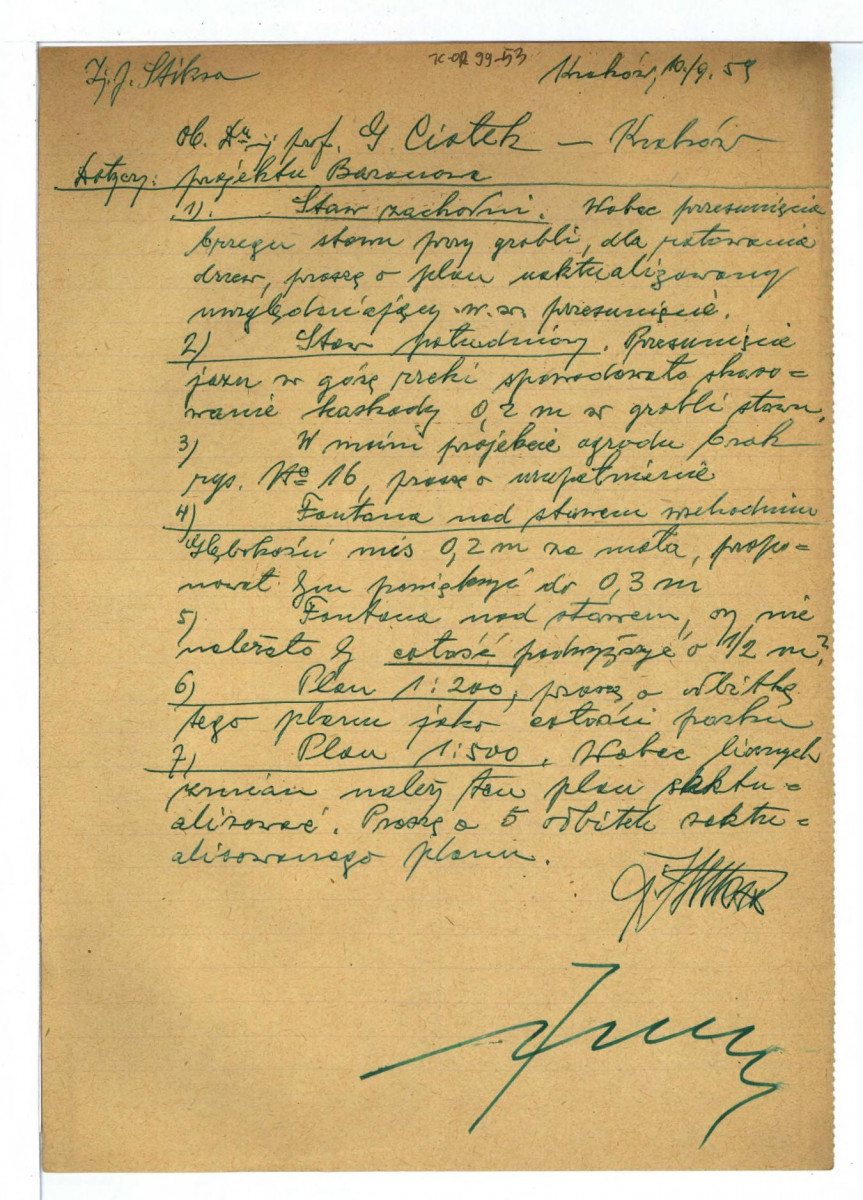 J. Stiksa
TC-OR 99-53
Kraków, 10./9. 59
ob. Dr j prof. G. Ciołek — Kraków
Dotyczy: projektu Baranowa
1). Staw zachodni. Wobec przesunięcia
brzegu stawu przy grobli, dla ratowania
drzew, proszę o plan uaktualizowany
uwzględniający w.w. przesunięcie.
2) Staw południowy. Przesunięcie
jazu w górę rzeki spowodowało skaso=
wanie kaskady 0,2 m w grobli stawu.
3) W moim projekcie ogrodu brak
rys. No 16, proszę o uzupełnienie
4) Fontana nad stawem wschodnim
Głębokość mis 0,2 m za mała, propo=
nował bym powiększyć do 0,3 m
5) Fontana nad stawem, czy nie
należało by całość podwyższyć o 1/2 m?
6) Plan 1:200, proszę o odbitkę
tego planu jako całości parku
7) Plan 1:500. Wobec licznych
zmian należy ten plan zaktu=
alizować. Proszę o 5 odbitek zaktu=
alizowanego planu.